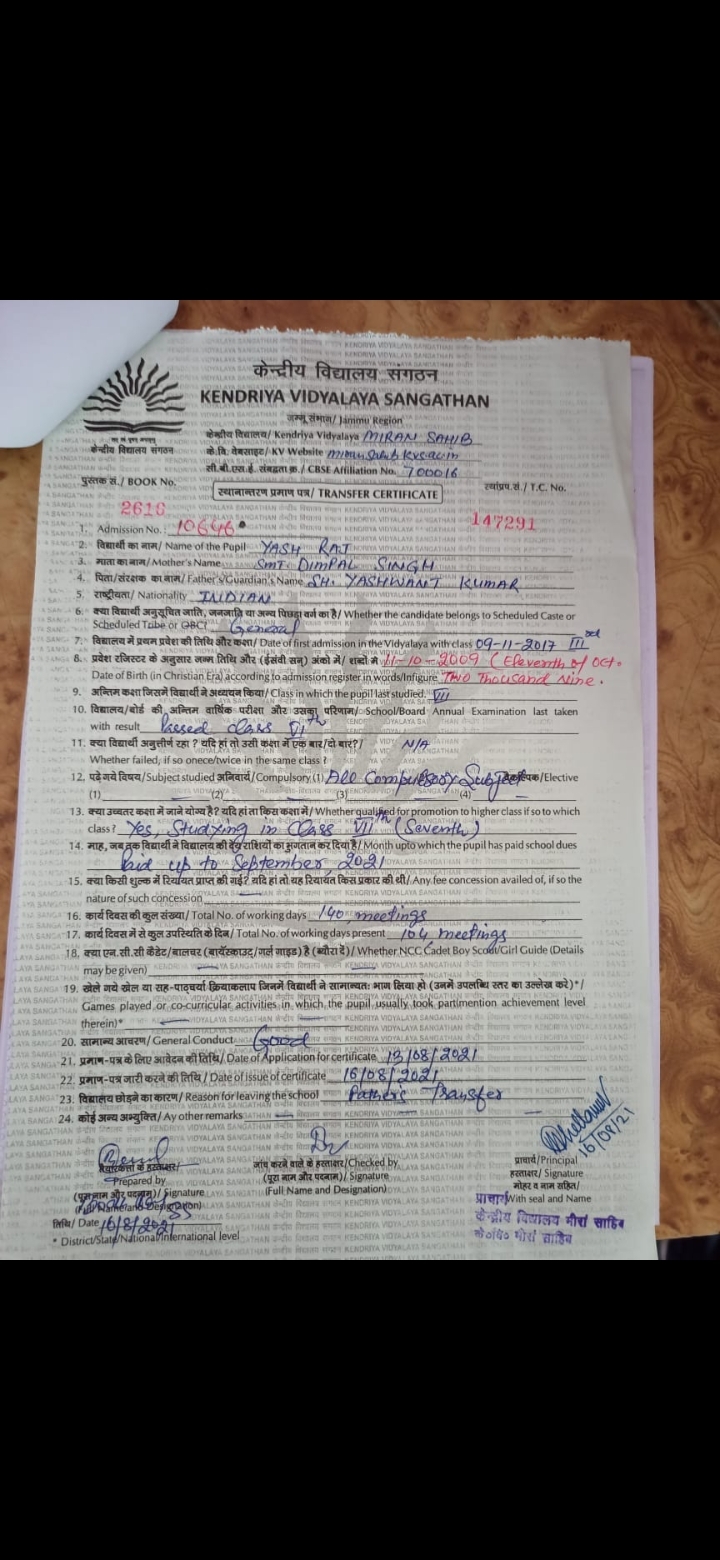 केन्द्रीय विद्यालय संगठन
KENDRIYA VIDYALAYA SANGATHAN
जम्मू संभाग/ Jammu Region
केन्द्रीय विद्यालय/ Kendriya Vidyalaya MIRAN SAHIB
केन्द्रीय विद्यालय संगठन
के.वि. वेबसाइट/ KV Website
सी.बी.एस.ई. संबद्धता क्र./ CBSE Affiliation No. 700016
पुस्तक सं./ BOOK No.
स्थानान्तरण प्रमाण पत्र/ TRANSFER CERTIFICATE
स्था॰प्र.सं./ T.C. No.
2616
147291
1. Admission No.: 10646
2. विद्यार्थी का नाम/ Name of the Pupil YASH RAJ
3. माता का नाम/Mother's Name SMT. DIMPAL SINGH
4. पिता/संरक्षक का नाम/ Father's/Guardian's Name SH. YASHWANT KUMAR
5. राष्ट्रीयता/ Nationality INDIAN
6. क्या विद्यार्थी अनुसूचित जाति, जनजाति या अन्य पिछड़ा वर्ग का है/ Whether the candidate belongs to Scheduled Caste or
Scheduled Tribe or OBC? General
7. विद्यालय में प्रथम प्रवेश की तिथि और कक्षा/ Date of first admission in the Vidyalaya with class 09-11-2017 III
8. प्रवेश रजिस्टर के अनुसार जन्म तिथि और (ईसवी सन्) अंकों में/ शब्दों में 11-10-2009 (Eleventh of Oct.
Date of Birth (in Christian Era) according to admission register in words/Infigure Two Thousand Nine.
9. अन्तिम कक्षा जिसमें विद्यार्थी ने अध्ययन किया/ Class in which the pupil last studied. VII
10. विद्यालय/बोर्ड की अन्तिम वार्षिक परीक्षा और उसका परिणाम/ School/Board Annual Examination last taken
with result Passed class VI th
11. क्या विद्यार्थी अनुत्तीर्ण रहा ? यदि हां तो उसी कक्षा में एक बार/दो बारे?/ N/A
Whether failed, if so onece/twice in the same class ?
12. पढ़े गये विषय/Subject studied अनिवार्य/ Compulsory (1) All Compulsory Subject /Elective
(1) (2) (3) (4)
13. क्या उच्चतर कक्षा में जाने योग्य है? यदि हां तो किस कक्षा में/ Whether qualified for promotion to higher class if so to which
class? Yes, Studying in Class VII th (Seventh)
14. माह, जब तक विद्यार्थी ने विद्यालय की देय राशियों का भुगतान कर दिया है/ Month upto which the pupil has paid school dues
Paid up to September, 2021
15. क्या किसी शुल्क में रियायत प्राप्त की गई? यदि हां तो यह रियायत किस प्रकार की थी/ Any fee concession availed of, if so the
nature of such concession
16. कार्य दिवस की कुल संख्या/ Total No. of working days 140 meetings
17. कार्य दिवस में से कुल उपस्थिति के दिन/ Total No. of working days present 104 meetings
18. क्या एन.सी.सी कैडेट/बालचर (बायॅस्काउट/गर्ल गाइड) है (ब्यौरा दें)/ Whether NCC Cadet Boy Scout/Girl Guide (Details
may be given)
19. खेले गये खेल या सह-पाठ्चर्या क्रियाकलाप जिनमें विद्यार्थी ने सामान्यतः भाग लिया हो (उनमें उपलब्धि स्तर का उल्लेख करे)*/
Games played or co-curricular activities in which, the pupil usually took partmention achievement level
therein)*
20. सामान्य आचरण/ General Conduct Good
21. प्रमाण-पत्र के लिए आवेदन की तिथि/ Date of Application for certificate 13/08/2021
22. प्रमाण-पत्र जारी करने की तिथि/ Date of issue of certificate 16/08/2021
23. विद्यालय छोड़ने का कारण/ Reason for leaving the school Father's Transfer
24. कोई अन्य अभ्युक्ति/ Ay other remarks
16/08/21
जांच करने वाले के हस्ताक्षर/Checked by
प्राचार्य/Principal
Prepared by
(पूरा नाम और पदनाम)/ Signature
हस्ताक्षर/ Signature
(पूरा नाम और पदनाम)/ Signature
(Full Name and Designation)
मोहर व नाम सहित/
With seal and Name
प्राचार्य
केन्द्रीय विद्यालय मीरां साहिब
के०वि० मीरां साहिब
तिथि/ Date 16/8/2021
* District/State/National/International level